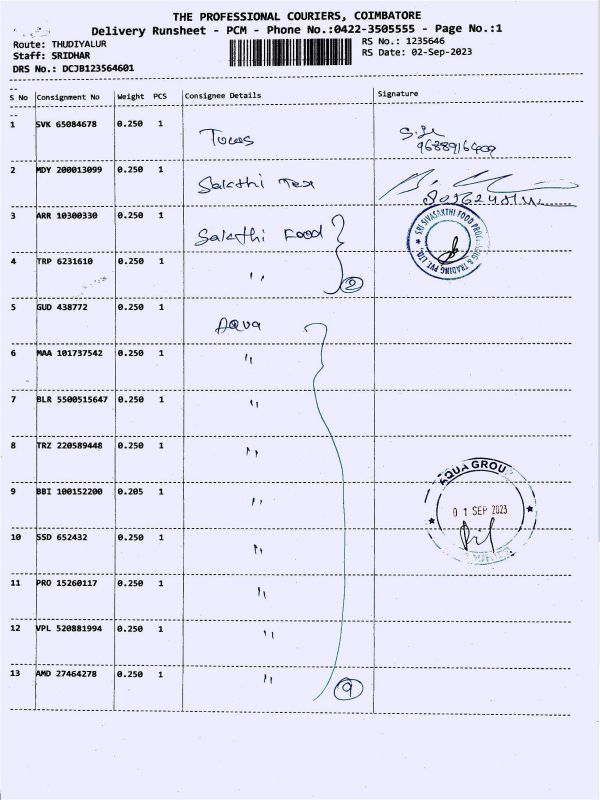 THE PROFESSIONAL COURIERS, COIMBATORE
Delivery Runsheet - PCM - Phone No.:0422-3505555 - Page No.:1
Route: THUDIYALUR
RS No.: 1235646
Staff: SRIDHAR
RS Date: 02-Sep-2023
DRS No.: DCJB123564601
S No Consignment No Weight PCS Consignee Details Signature
1 SVK 65084678 0.250 1 Tucas
2 MDY 200013099 0.250 1 Sakthi Tex
3 ARR 10300330 0.250 1 Sakthi Food
SRI SIVASAKTHI FOOD PROCESSING & TRADING PVT. LTD.,
4 TRP 6231610 0.250 1 " 2
5 GUD 438772 0.250 1 Aqua
6 MAA 101737542 0.250 1 "
7 BLR 5500515647 0.250 1 "
8 TRZ 220589448 0.250 1 "
AQUA GROUP
9 BBI 100152200 0.205 1 "
01 SEP 2023
10 SSD 652432 0.250 1 "
11 PRO 15260117 0.250 1 "
12 VPL 520881994 0.250 1 "
13 AMD 27464278 0.250 1 " 9